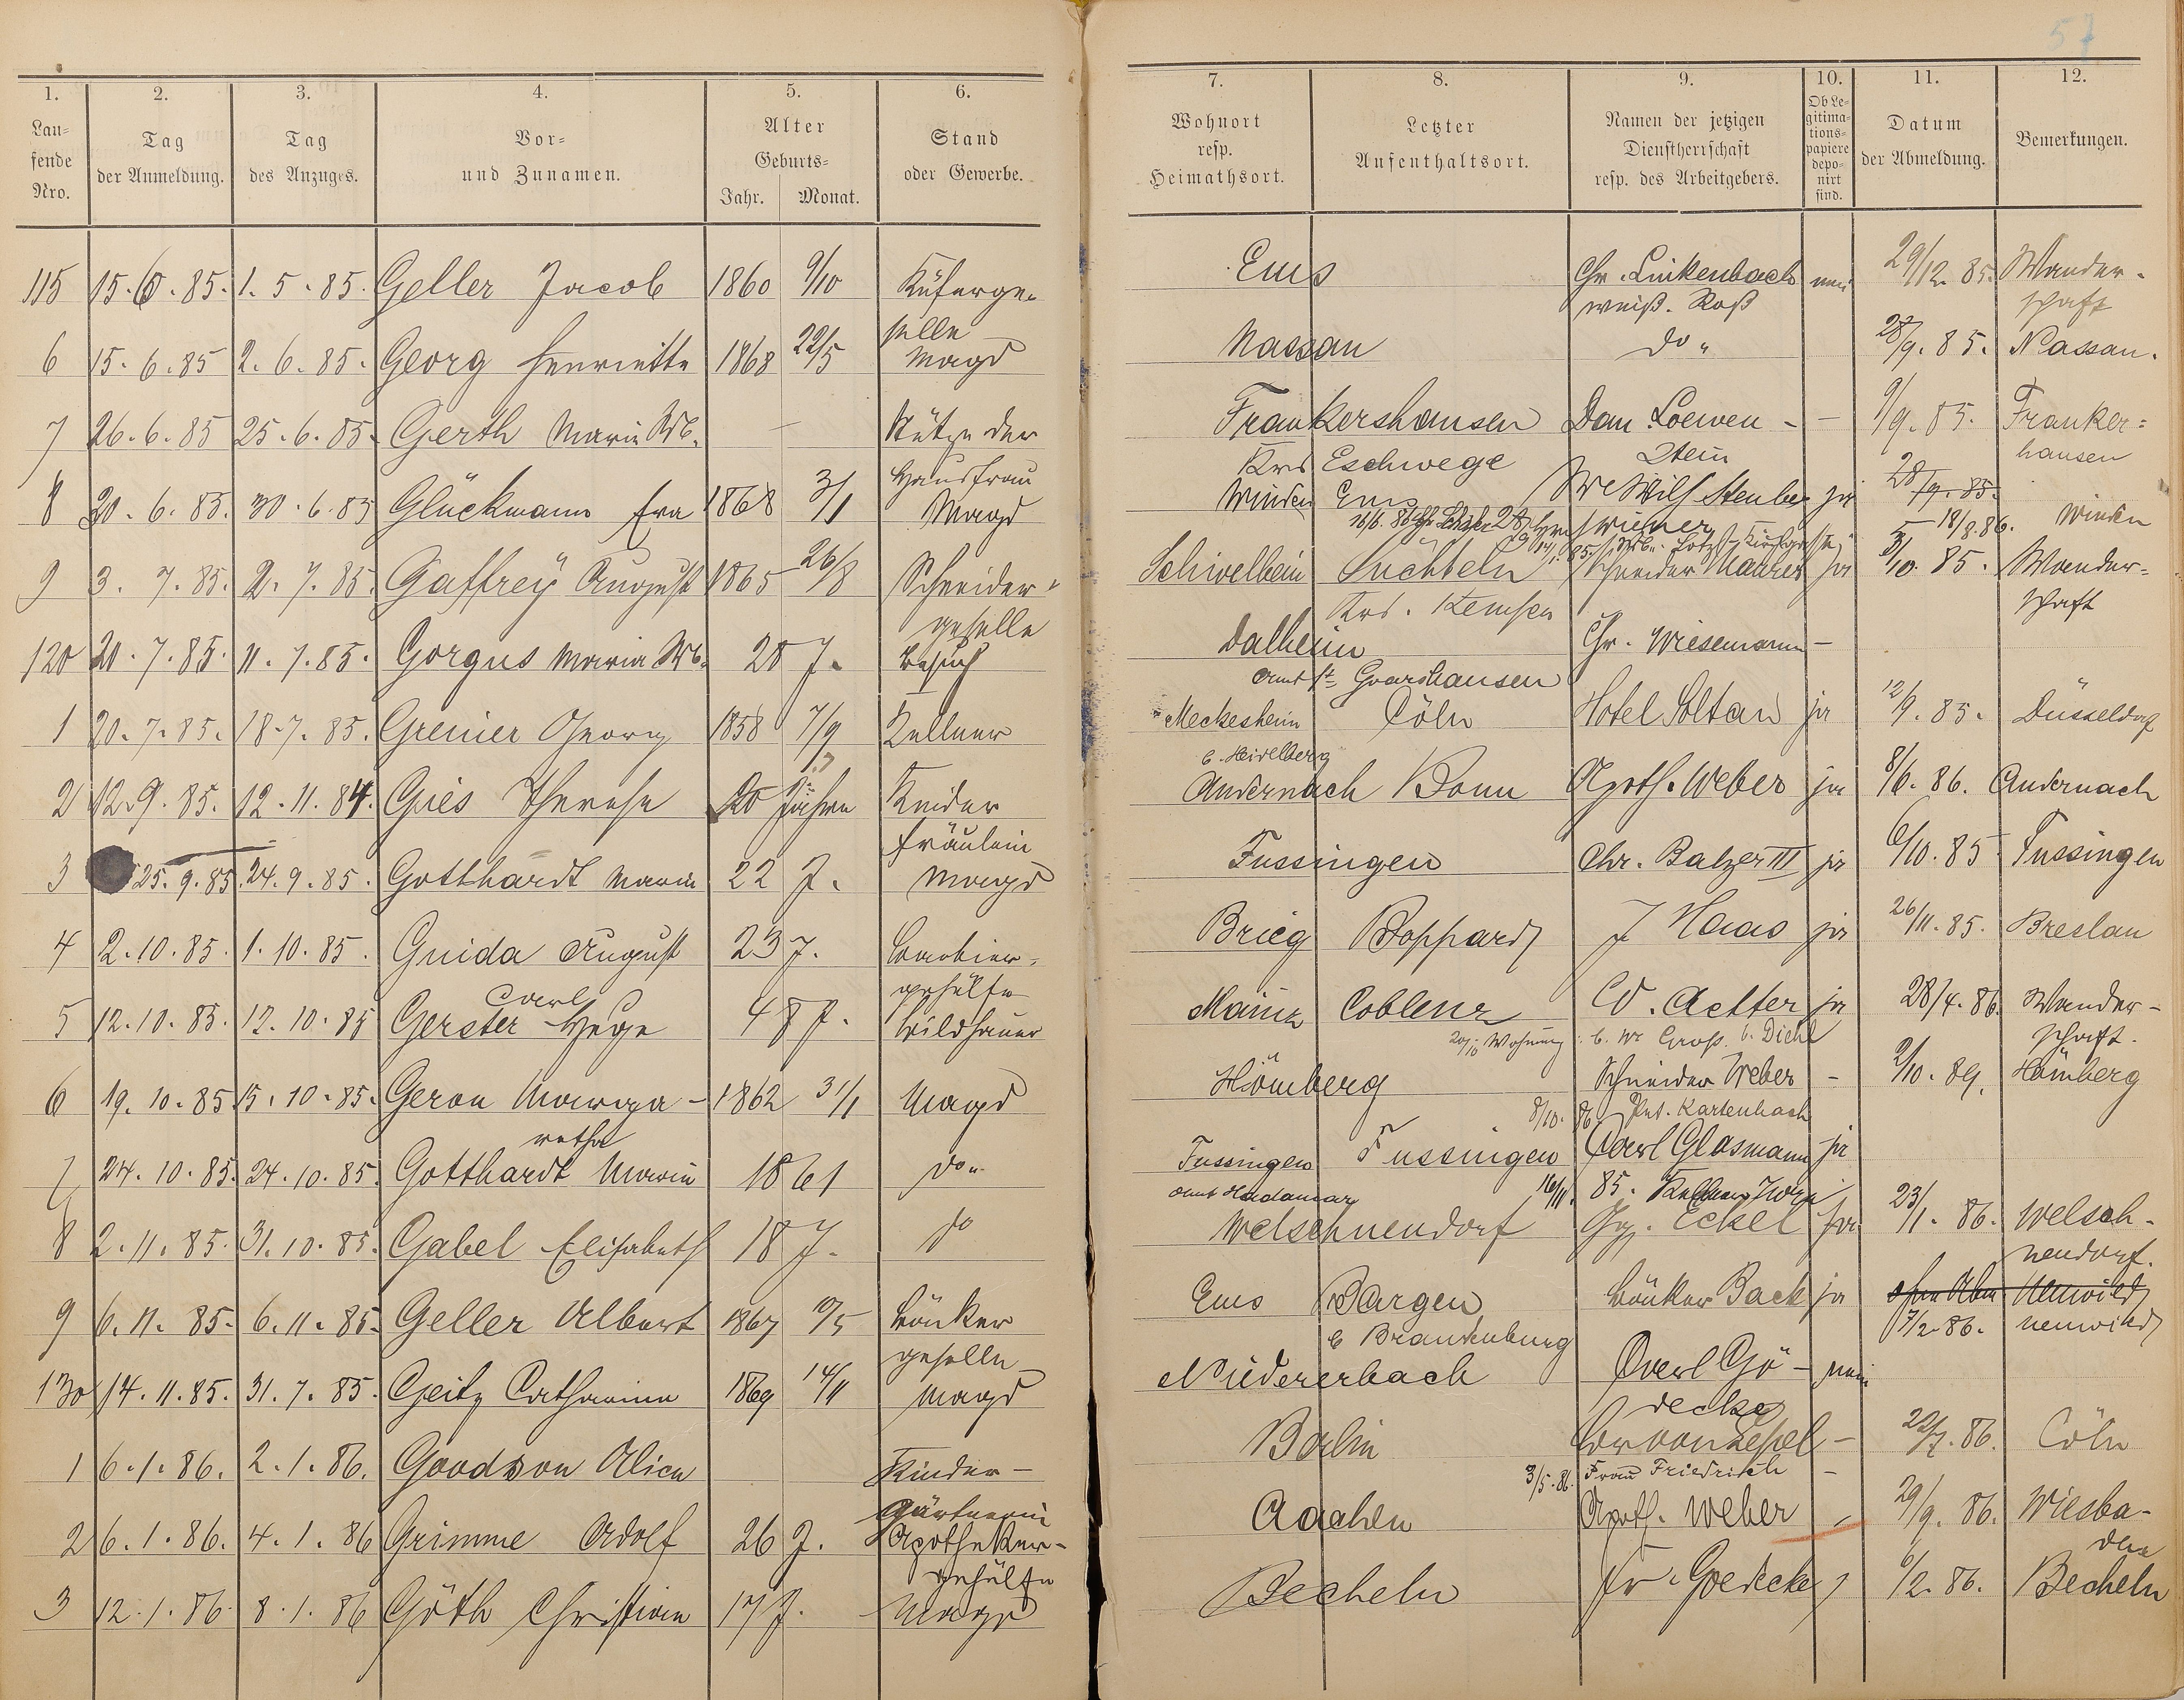 57
1. 2. 3. 4. 5. 6. 7. 8. 9. 10. 11. 12.
Lau-
fende
Nro.
Tag
der Anmeldung.
Tag
des Anzuges.
Vor-
und Zunamen.
Alter
Geburts-
Jahr. Monat.
Stand
oder Gewerbe.
Wohnort
resp.
Heimathsort.
Letzter
Aufenthaltsort.
Namen der jetzigen
Dienstherrschaft
resp. des Arbeitgebers.
Ob Le-
gitima-
tions-
papiere
depo-
nirt
sind.
Datum
der Abmeldung.
Bemerkungen.
115 15.6.85. 1.5.85. Geller Jacob 1860 9/10 Küferge- Ems Chr. Linkenbach nein 29/12.85. Wander-
selle weiß. Roß schaft
6 15.6.85 2.6.85. Georg Henriette 1868 22/5 Magd Nassau do " 28/9.85. Nassau.
7 26.6.85 25.6.85. Gerth Marie Wb. — Stütze der Frankershausen Dan. Loewen- - 1/9.85. Franker=
Hausfrau Krs Eschwege stein hausen
8 30.6.85. 30.6.85 Glückmann Eva 1868 3/1 Magd Winden Ems We Wilh Steuber ja 28/9.85.
18/8.86. Winden
9 3.7.85. 2.7.85. Gaffrey August 1865 26/8 Schneider- Schivelbein Süchteln Schneider Maurer ja 3/10.85. Wander=
geselle Krs. Kempen schaft
120 21.7.85. 11.7.85. Gorgus Maria Wb. 28 J. Besuch Dalheim Chr. Wiesemann -
Amt St. Goarshausen
1 20.7.85. 18.7.85. Greiner Georg 1858 7/9 Kellner Meckesheim Cöln Hotel Soltau ja 12/9.85. Düsseldorf
b. Heidelberg
2 12.9.85. 12.11.84. Gies Therese 20 Jahre Kinder Andernach Bonn Apoth. Weber ja 8/6.86. Andernach
fräulein
3 25.9.85. 24.9.85. Gotthardt Marie 22 J. Magd Fussingen Chr. Balzer III ja 6/10.85 Fussingen
4 2.10.85. 1.10.85. Guida August 23 J. Barbier- Brieg Boppard J Haas ja 26/11.85. Breslau
gehülfe
5 12.10.85. 12.10.85 Gerster Carl Hugo 48 J. Bildhauer Mainz Coblenz W. Aetter ja 28/4.86. Wander-
20/10 Wohnung b. We Groß. b. Diehl schaft.
6 19.10.85 15.10.85. Geron Marga- 1862 31/1 Magd Hömberg Schneider Weber - 2/10.89. Hömberg
retha 8/10.86 Pet. Kartenbach
7 24.10.85. 24.10.85. Gotthardt Marie 1861 do " Fussingen Fussingen Carl Glasmann ja
Amt Hadamar 16/11. 85.
8 2.11.85. 31.10.85. Gabel Elisabeth 18 J. do Welschneudorf Gg. Eckel ja 23/1.86. Welsch-
neudorf.
9 6.11.85. 6.11.85. Geller Albert 1867 10/5 Bäcker Ems Bargen Bäcker Back ja ohne Abm Neuwied
geselle b Brandenburg 7/2.86. Neuwied
130 14.11.85. 31.7.85. Geitz Catharina 1869 14/11 Magd Niedererbach Carl Gö- nein
decke
1 6.1.86. 2.1.86. Goodson Alice Kinder- Berlin Cor von Lepel - 22/7.86. Cöln
Gärtnerin 3/5.86. Frau Friedrich -
2 6.1.86. 4.1.86 Grimme Adolf 26 J. Apotheker- Aachen Apoth. Weber - 29/9.86. Wiesba-
gehülfe den
3 12.1.86. 8.1.86 Göth Christian 17 J. Magd Becheln Fr. Goedecke 6/2.86. Becheln